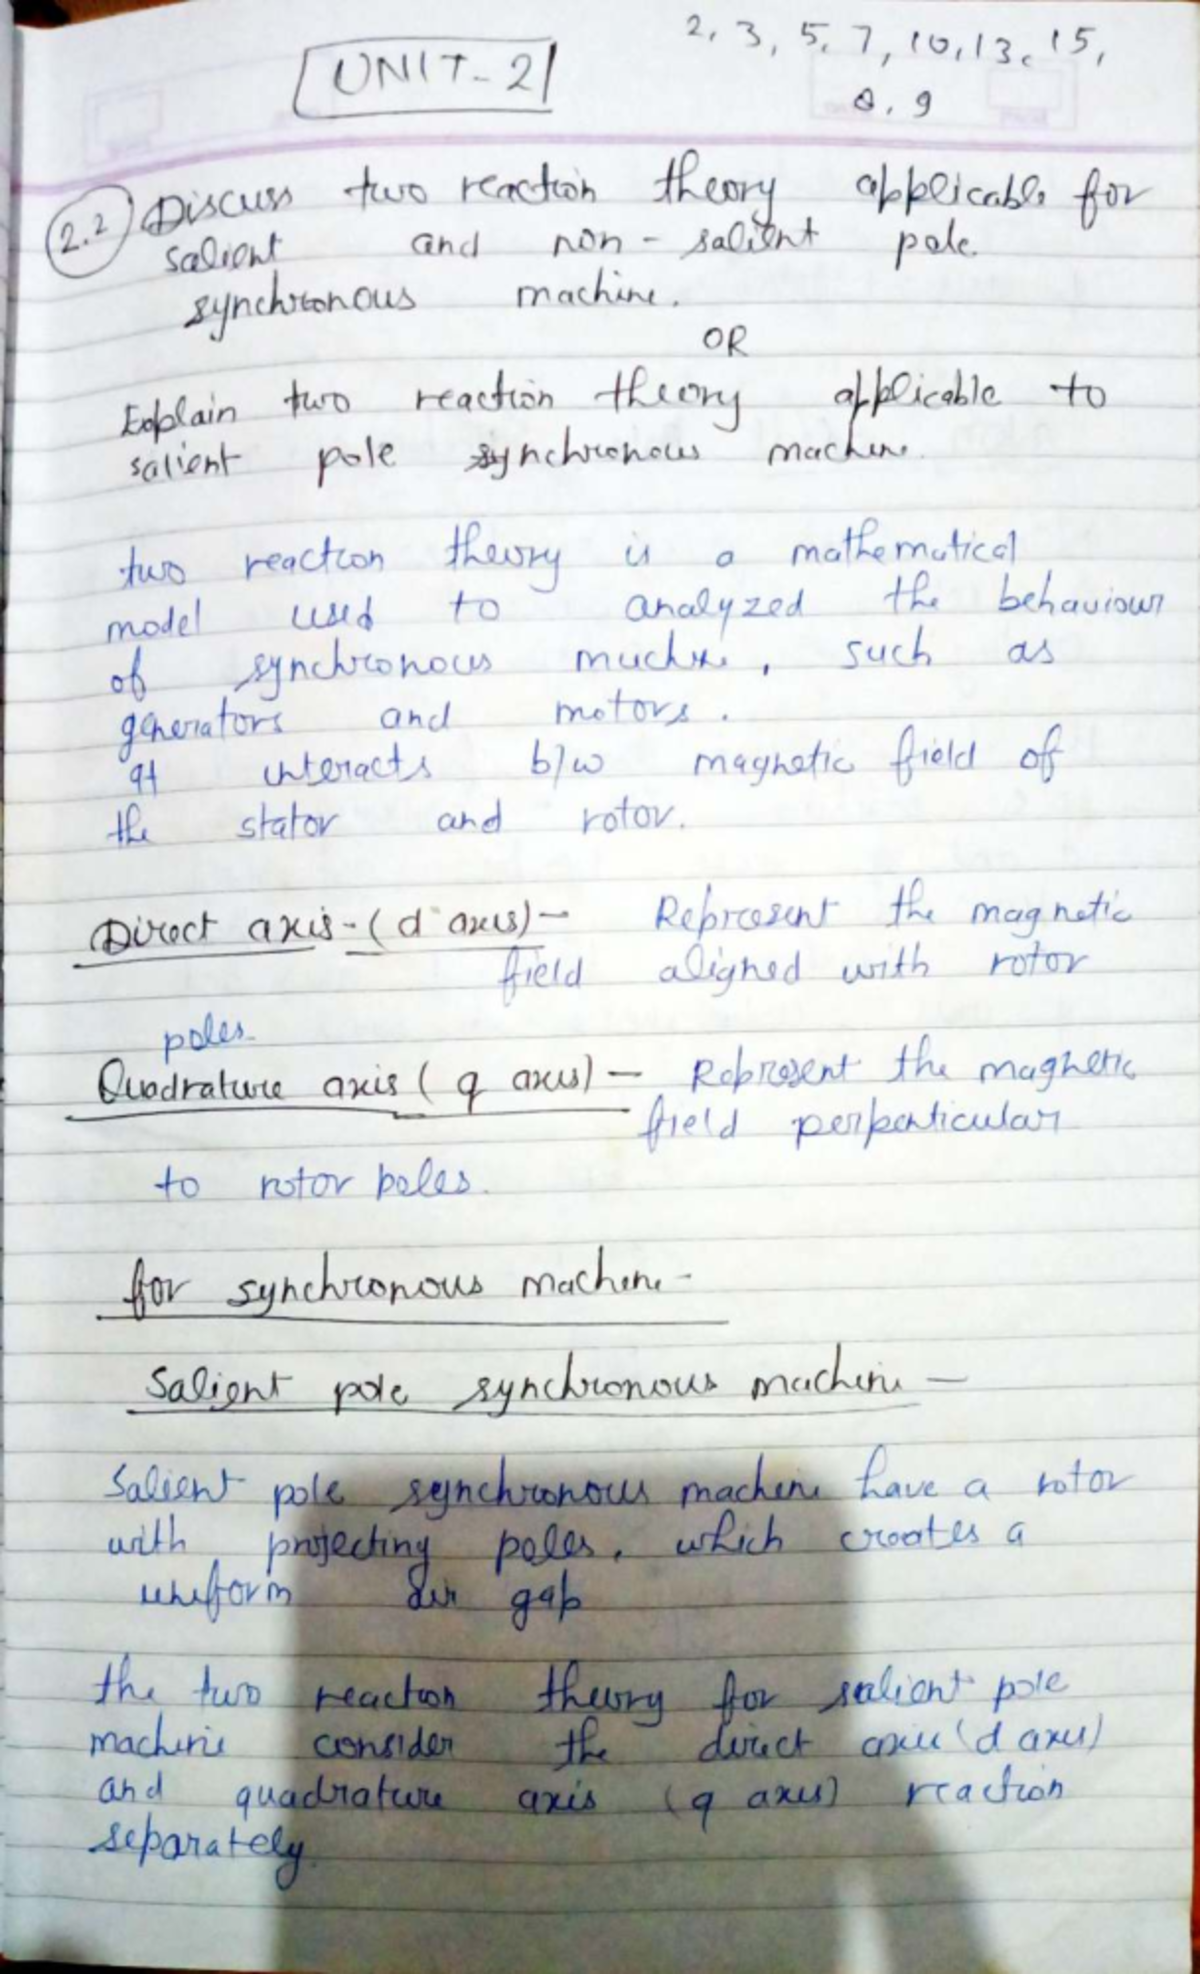 UNIT-2
2, 3, 5, 7, 10, 13, 15,
8, 9
2.2 Discuss two reaction theory applicable for
salient and non-salient pole
synchronous machine.
OR
Explain two reaction theory applicable to
salient pole synchronous machine.
two reaction theory is a mathematical
model used to analyzed the behaviour
of synchronous machine, such as
generators and motors.
It interacts b/w magnetic field of
the stator and rotor.
Direct axis-(d axis)- Represent the magnetic
field aligned with rotor
poles.
Quadrature axis (q axis) - Represent the magnetic
field perpenticular
to rotor poles.
for synchronous machine-
Salient pole synchronous machine -
Salient pole synchronous machine have a rotor
with projecting poles, which creates a
uniform air gap
the two reaction theory for salient pole
machine consider the direct axis (d axis)
and quadrature axis (q axis) reaction
separately.